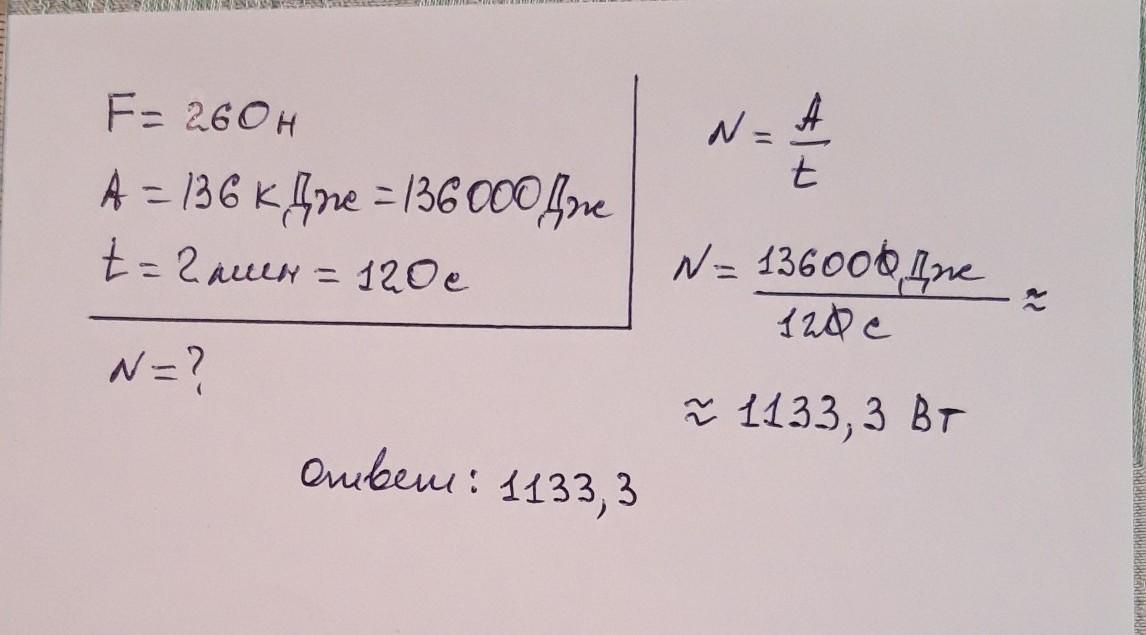 F = 260н
A = 136 кДж = 136000Дж
t = 2 мин = 120 с
N = ?
N = A/t
N = 136000Дж/120 с ≈
≈ 1133,3 Вт
Ответ: 1133,3